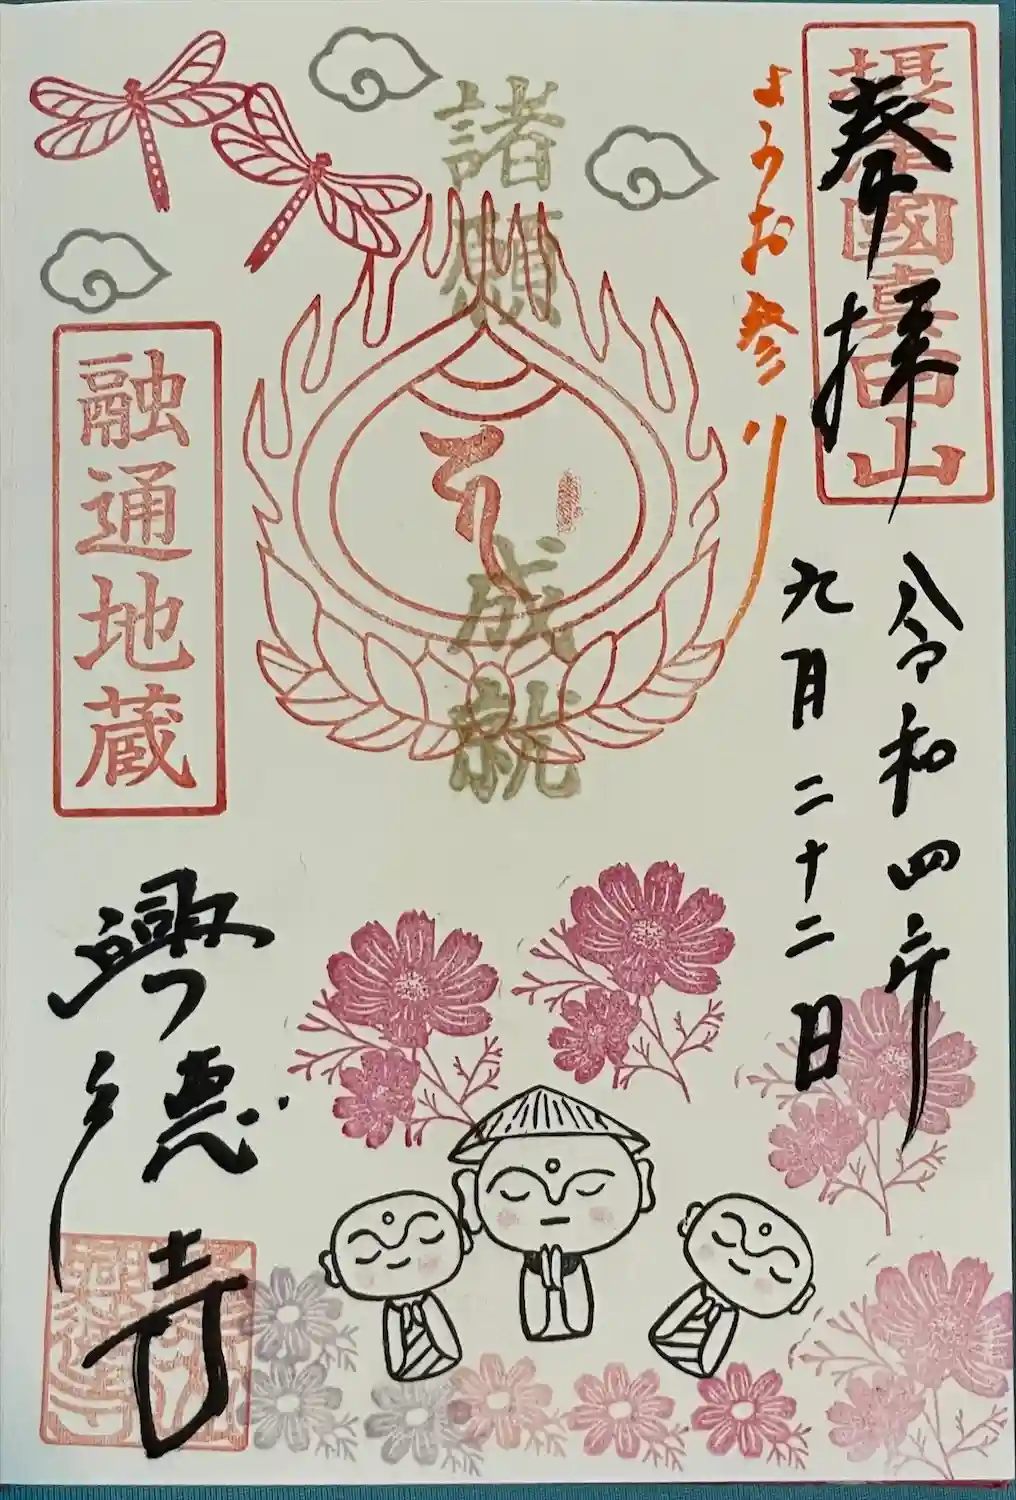 摂津國真田山
奉拝
令和四年
九月二十二日
ようお参り
諸願成就
融通地蔵
興徳寺